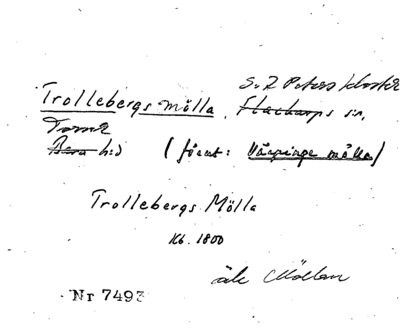 S:t Peters kloster
Trollebergs mölla, Flackarps sn,
Torna
Bara h:d (förut: Värpinge mölla)
Trollebergs Mölla
Kb. 1800
äk Möllan
Nr 7493